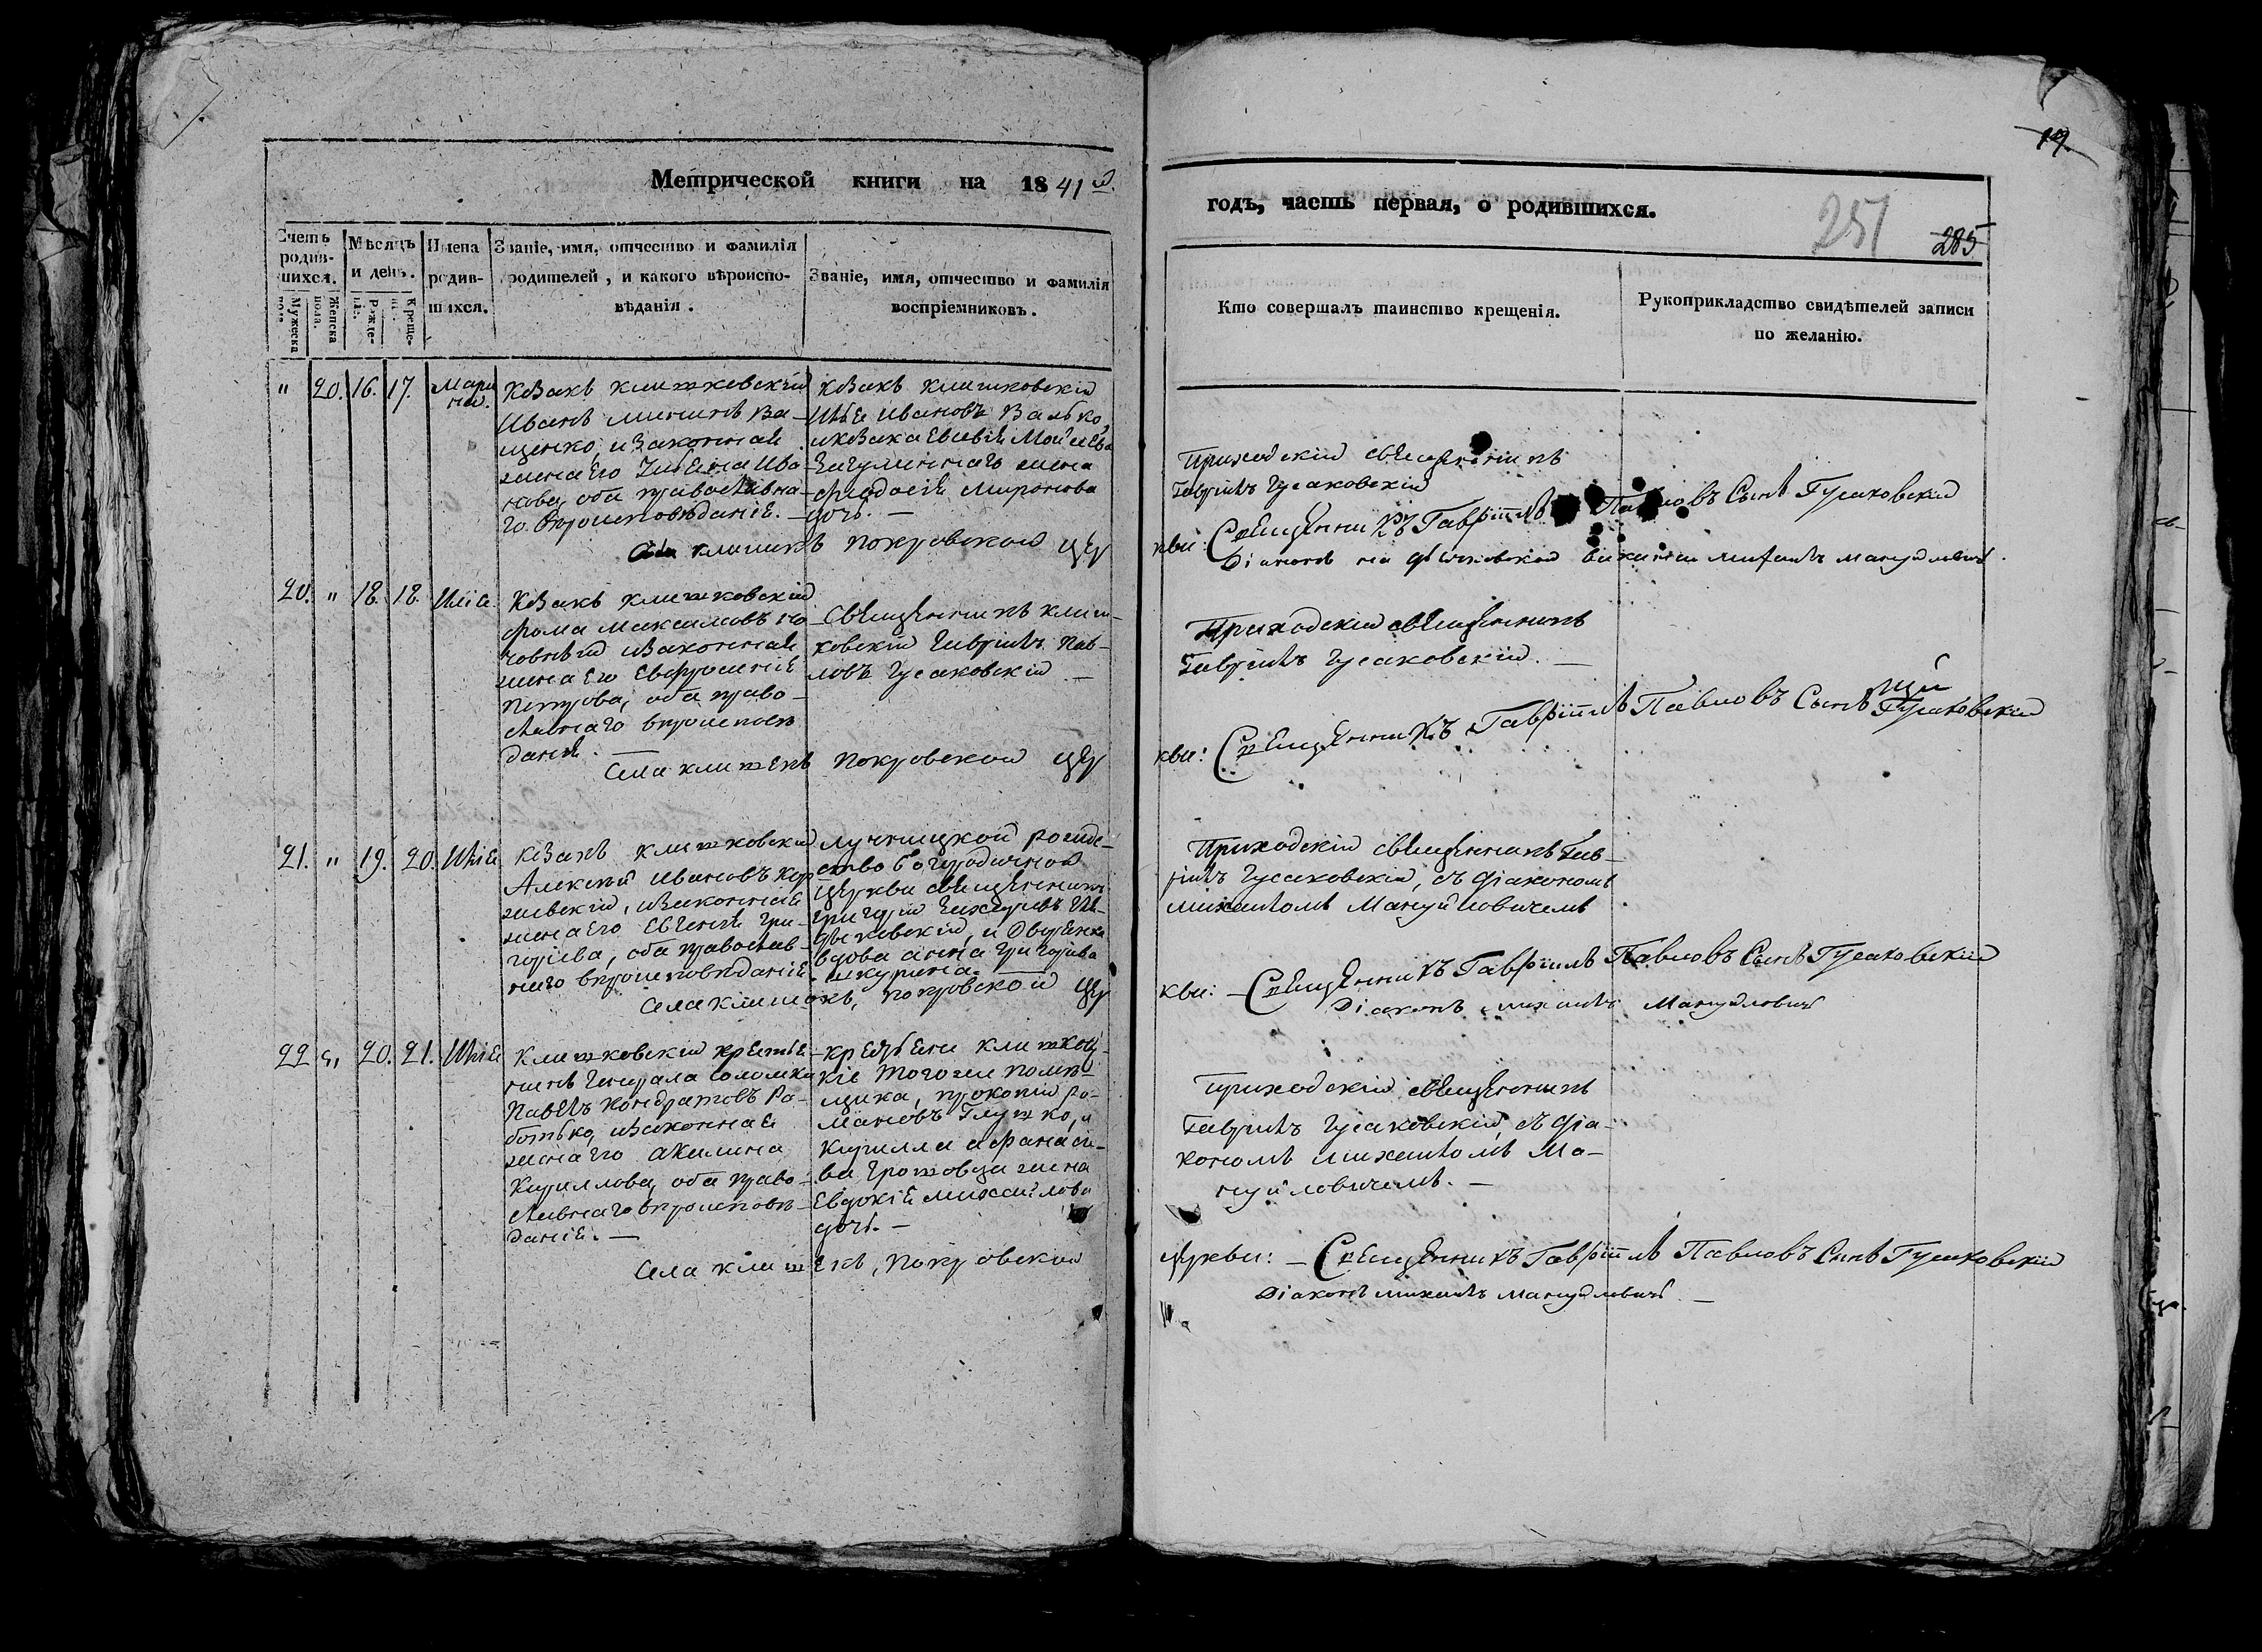 19.
Метрической книги на 1841й.
годъ, часть первая, о родившихся.
251 285
Счетъ родив-шихся.
Мужеска пола.
Женска пола.
Мѣсяцъ и день.
Рожде-
Креще-
Имена родив-шихся.
Званіе, имя, отчество и фамилія
родителей, и какого вѣроиспо-
вѣданія.
Званіе, имя, отчество и фамилія
воспріемниковъ.
Кто совершалъ таинство крещенія.
Рукоприкладство свидѣтелей записи
по желанію.
" 20. 16. 17. Мари
на.
Козакъ клишковскій
Иванъ
щенко, и законная
жена его Ива-
нова, оба православна-
го вѣроисповѣданія. —
Козакъ клишковскій
Ивановъ Валько,
и козака Моисеева
жена
Феодосія Миронова
дочь. —
Приходскій священникъ
Гавріилъ Гусаковскій
Села клишокъ Покровской цер
кви: Священникъ Гавріилъ Павловъ Сынъ Гусаковскій
Діаконъ на вакансіи Михаилъ Мануйловичъ.
20. " 18. 18. Илія.
Козакъ клишковскій
Фома Максимовъ
и законная
жена его Евфросинія
Петрова, оба право-
славнаго вѣроисповѣ
данія.
Священникъ клиш-
ковскій Гавріилъ Пав-
ловъ Гусаковскій —
Приходскій священникъ
Гавріилъ Гусаковскій. —
Села клишекъ Покровской цер
кви: Священникъ Гавріилъ Павловъ Сынъ Гусаковскій
21. " 19. 20. Илія
Козакъ клишковскій
Алексѣй Ивановъ
и законная
жена его Евгенія Гри-
горіева, оба православ-
наго вѣроисповѣданія.
рожде-
ство Богородичной
церкви священникъ
Григорій
и дворянка
вдова Анна Григоріева
Шкурина. —
Приходскій священникъ Гав-
ріилъ Гусаковскій, съ діакономъ
Михаиломъ Мануйловичемъ
Села клишекъ, Покровской цер
кви: — Священникъ Гавріилъ Павловъ Сынъ Гусаковскій
Діаконъ Михаилъ Мануйловичъ
22 " 20. 21. Илія
Клишковскій крестья-
нинъ генерала Соломки
Павелъ Кондратовъ Ро-
ботько, и законная
жена его Акилина
Кириллова, оба право-
славнаго вѣроисповѣ-
данія. —
крестьяне клишков-
кіе того же помѣ-
щика, Прокопій Ро-
мановъ Глушко, и
Кирилла Афанасіе-
ва жена
Евдокія Михайлова
дочь. —
Приходскій священникъ
Гавріилъ Гусаковскій, съ діа-
кономъ Михаиломъ Ма-
нуйловичемъ. —
Села клишекъ, Покровской
церкви: — Священникъ Гавріилъ Павловъ Сынъ Гусаковскій
Діаконъ Михаилъ Мануйловичъ. —